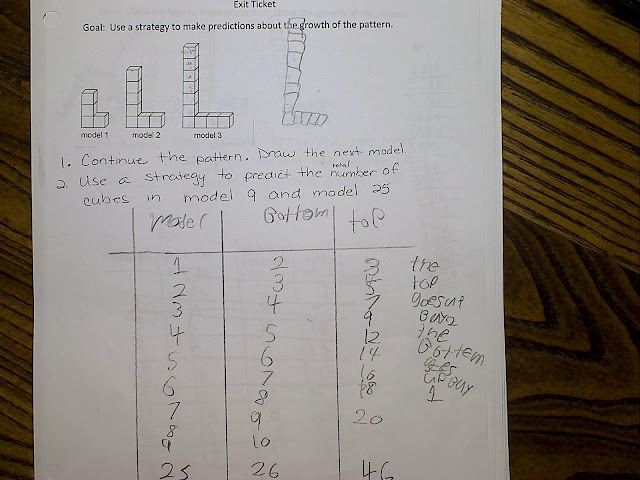 Exit Ticket
Goal: Use a strategy to make predictions about the growth of the pattern.
model 1 model 2 model 3
1. Continue the pattern. Draw the next model
2. Use a strategy to predict the total number of
cubes in model 9 and model 25
Model Bottom top
1 2 3 the
2 3 5 top
3 4 7 goes up
4 5 9 buy 2
5 6 12 the
6 7 14 Bottem
7 8 16 goes
8 9 18 UP Buy
9 10 20 1
25 26 46